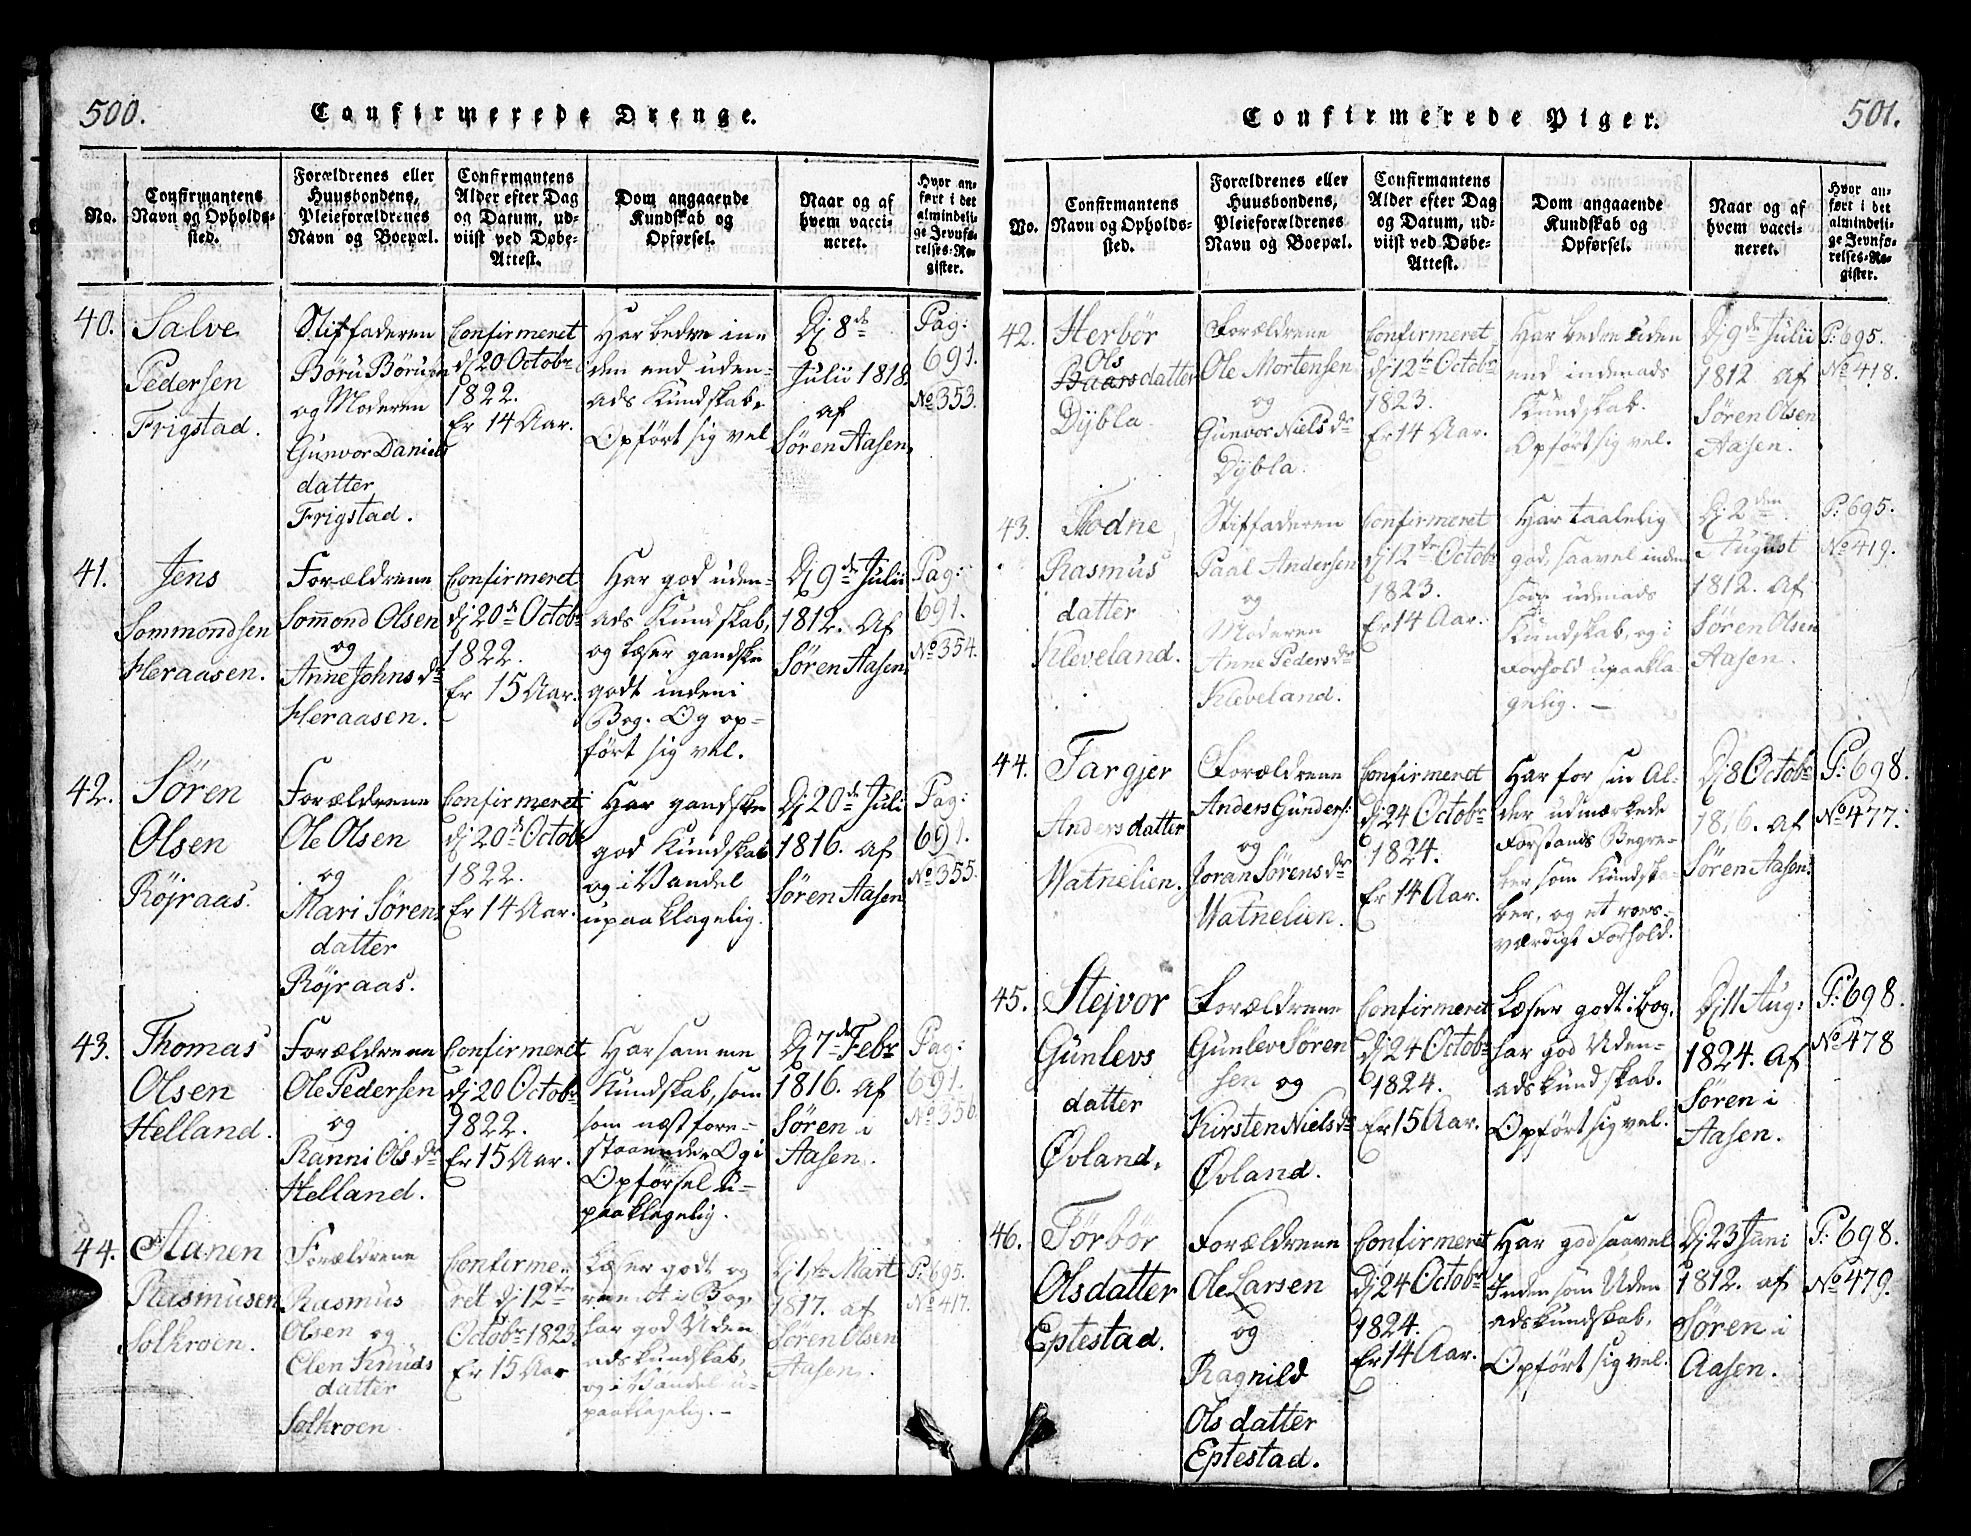 500.
Confirmerede Drenge.
No.
Confirmantens
Navn og Opholds-
sted.
Forældrenes eller
Huusbondens,
Pleieforældrenes
Navn og Boepæl.
Confirmantens
Alder efter Dag
og Datum, ud-
viist ved Døbe-
Attest.
Dom angaaende
Kundskab og
Opførsel.
Naar og af
hvem vacci-
neret.
Hvor an-
ført i det
almindeli-
ge Jevnfø-
relses-Re-
gister.
40.
Salve
Pedersen
Frigstad.
Stiffaderen
Børu Børusen
og Moderen
Gunvor Daniels
datter
Frigstad.
Confirmeret
dj 20 Octobr
1822.
Er 14 Aar.
Har bedre in=
den end uden=
ads Kundskab.
Opført sig vel
Dj 8de
Julii 1818.
af
Søren Aasen.
Pag:
691.
No 353.
41.
Jens
Sommondsen
Heraasen.
Forældrene
Somond Olsen
og
Anne Johns dr
Heraasen.
Confirmeret
dj 20de Octobr
1822.
Er 15 Aar.
Har god uden=
ads Kundskab,
og læser gandske
godt inden i
Bog. Og op=
ført sig vel.
Dj 9de Julii
1812. af
Søren Aasen.
Pag:
691.
No 354.
42.
Søren
Olsen
Röjraas.
Forældrene
Ole Olsen
og
Mari Sørens
datter
Röjraas.
Confirmeret
dj 20de Octobr
1822.
Er 14 Aar.
Har gandske
god Kundskab
og i Vandel
upaaklagelig.
Dj 20de Juli
1816. af
Søren Aasen
Pag:
691.
No 355.
43.
Thomas
Olsen
Helland.
Forældrene
Ole Pedersen
og
Ranni Ols dr
Helland.
Confirmeret
dj 20 Octobr
1822.
Er 15 Aar.
Har samme
Kundskab, som
som næst fore=
staaende. Og i
Opførsel u=
paaklagelig.
Dj 7de Febr
1816. af
Søren i
Aasen.
Pag:
691.
No 356
44.
Stanen
Rasmusen
Solkroen.
Forældrene
Rasmus
Olsen og
Elen Knuds
datter
Solkroen
Confirme=
ret dj 12te
Octobr 1823.
Er 15 Aar
Læser godt og
i Bog,
har god Uden
adskundskab,
og i Vandel u=
paaklagelig. -
Dj 1ste Mart
1817. af
Søren Olsen
Aasen.
P: 695.
No 417.
Confirmerede Piger.
501.
No.
Confirmantens
Navn og Opholds-
sted.
Forældrenes eller
Huusbondens,
Pleieforældrenes
Navn og Boepæl.
Confirmantens
Alder efter Dag
og Datum, ud-
viist ved Døbe-
Attest.
Dom angaaende
Kundskab og
Opførsel.
Naar og af
hvem vacci-
neret.
Hvor an-
ført i det
almindeli-
ge Jevnfø-
relses-Re-
gister.
42.
Herbör
Ols
Baarsdatter
Dÿbla.
Forældrene
Ole Mortensen
og
Gunvor Niels dr
Dÿbla.
Confirmeret
dj 12te Octobr
1823.
Er 14 Aar.
Har bedre uden
end indenads
Kundskab.
Opført sig vel.
Dj 9de Julii
1812 af
Søren Olsen
Aasen.
P: 695.
No 418.
43.
Todne
Rasmus
datter
Kleveland.
Stiffaderen
Paal Andersen
og
Moderen
Anne Peders dr
Kleveland.
Confirmeret
dj 12te Octobr
1823.
Er 14 Aar.
Har taalelig
god, saavel inden
som udenads
Kundskab, og i
Forhold upaakla
gelig. -
Dj 2den
August
1812. af
Søren Olsen
Aasen.
P: 695.
No 419.
44.
Targjer
Andersdatter
Watnelien.
Forældrene
Anders Gunders:
og
Joran Sørens dr
Watnelien.
Confirmeret
dj 24 Octobr
1824.
Er 14 Aar.
Har for sin Al=
der udmærkede
Forstands Begre=
ber som Kundska=
ber, og et roes=
værdigt Forhold.
Dj 8 Octobr
1816. af
Søren Aasen.
P: 698.
No 477.
45.
Stejvor
Gunlevs
datter
Øvland.
Forældrene
Gunlev Søren
sen og
Kirsten Niels dr
Øvland.
Confirmeret
dj 24 Octobr
1824.
Er 15 Aar.
Læser godt i Bog,
har god Uden=
adskundskab.
Opført sig vel.
Dj 11 Aug:
1824. af
Søren i
Aasen.
P: 698.
No 478
46.
Törbör
Olsdatter
Eptestad.
Forældrene
Ole Larsen
og
Ragnild
Ols datter
Eptestad.
Confirmeret
Dj 24 Octobr
1824.
Er 14 Aar.
Har god saavel
Inden som Uden
adskundskab.
Opført sig vel.
Dj 23 Juni
1812. af
Søren i
Aasen.
P: 698.
No 479.